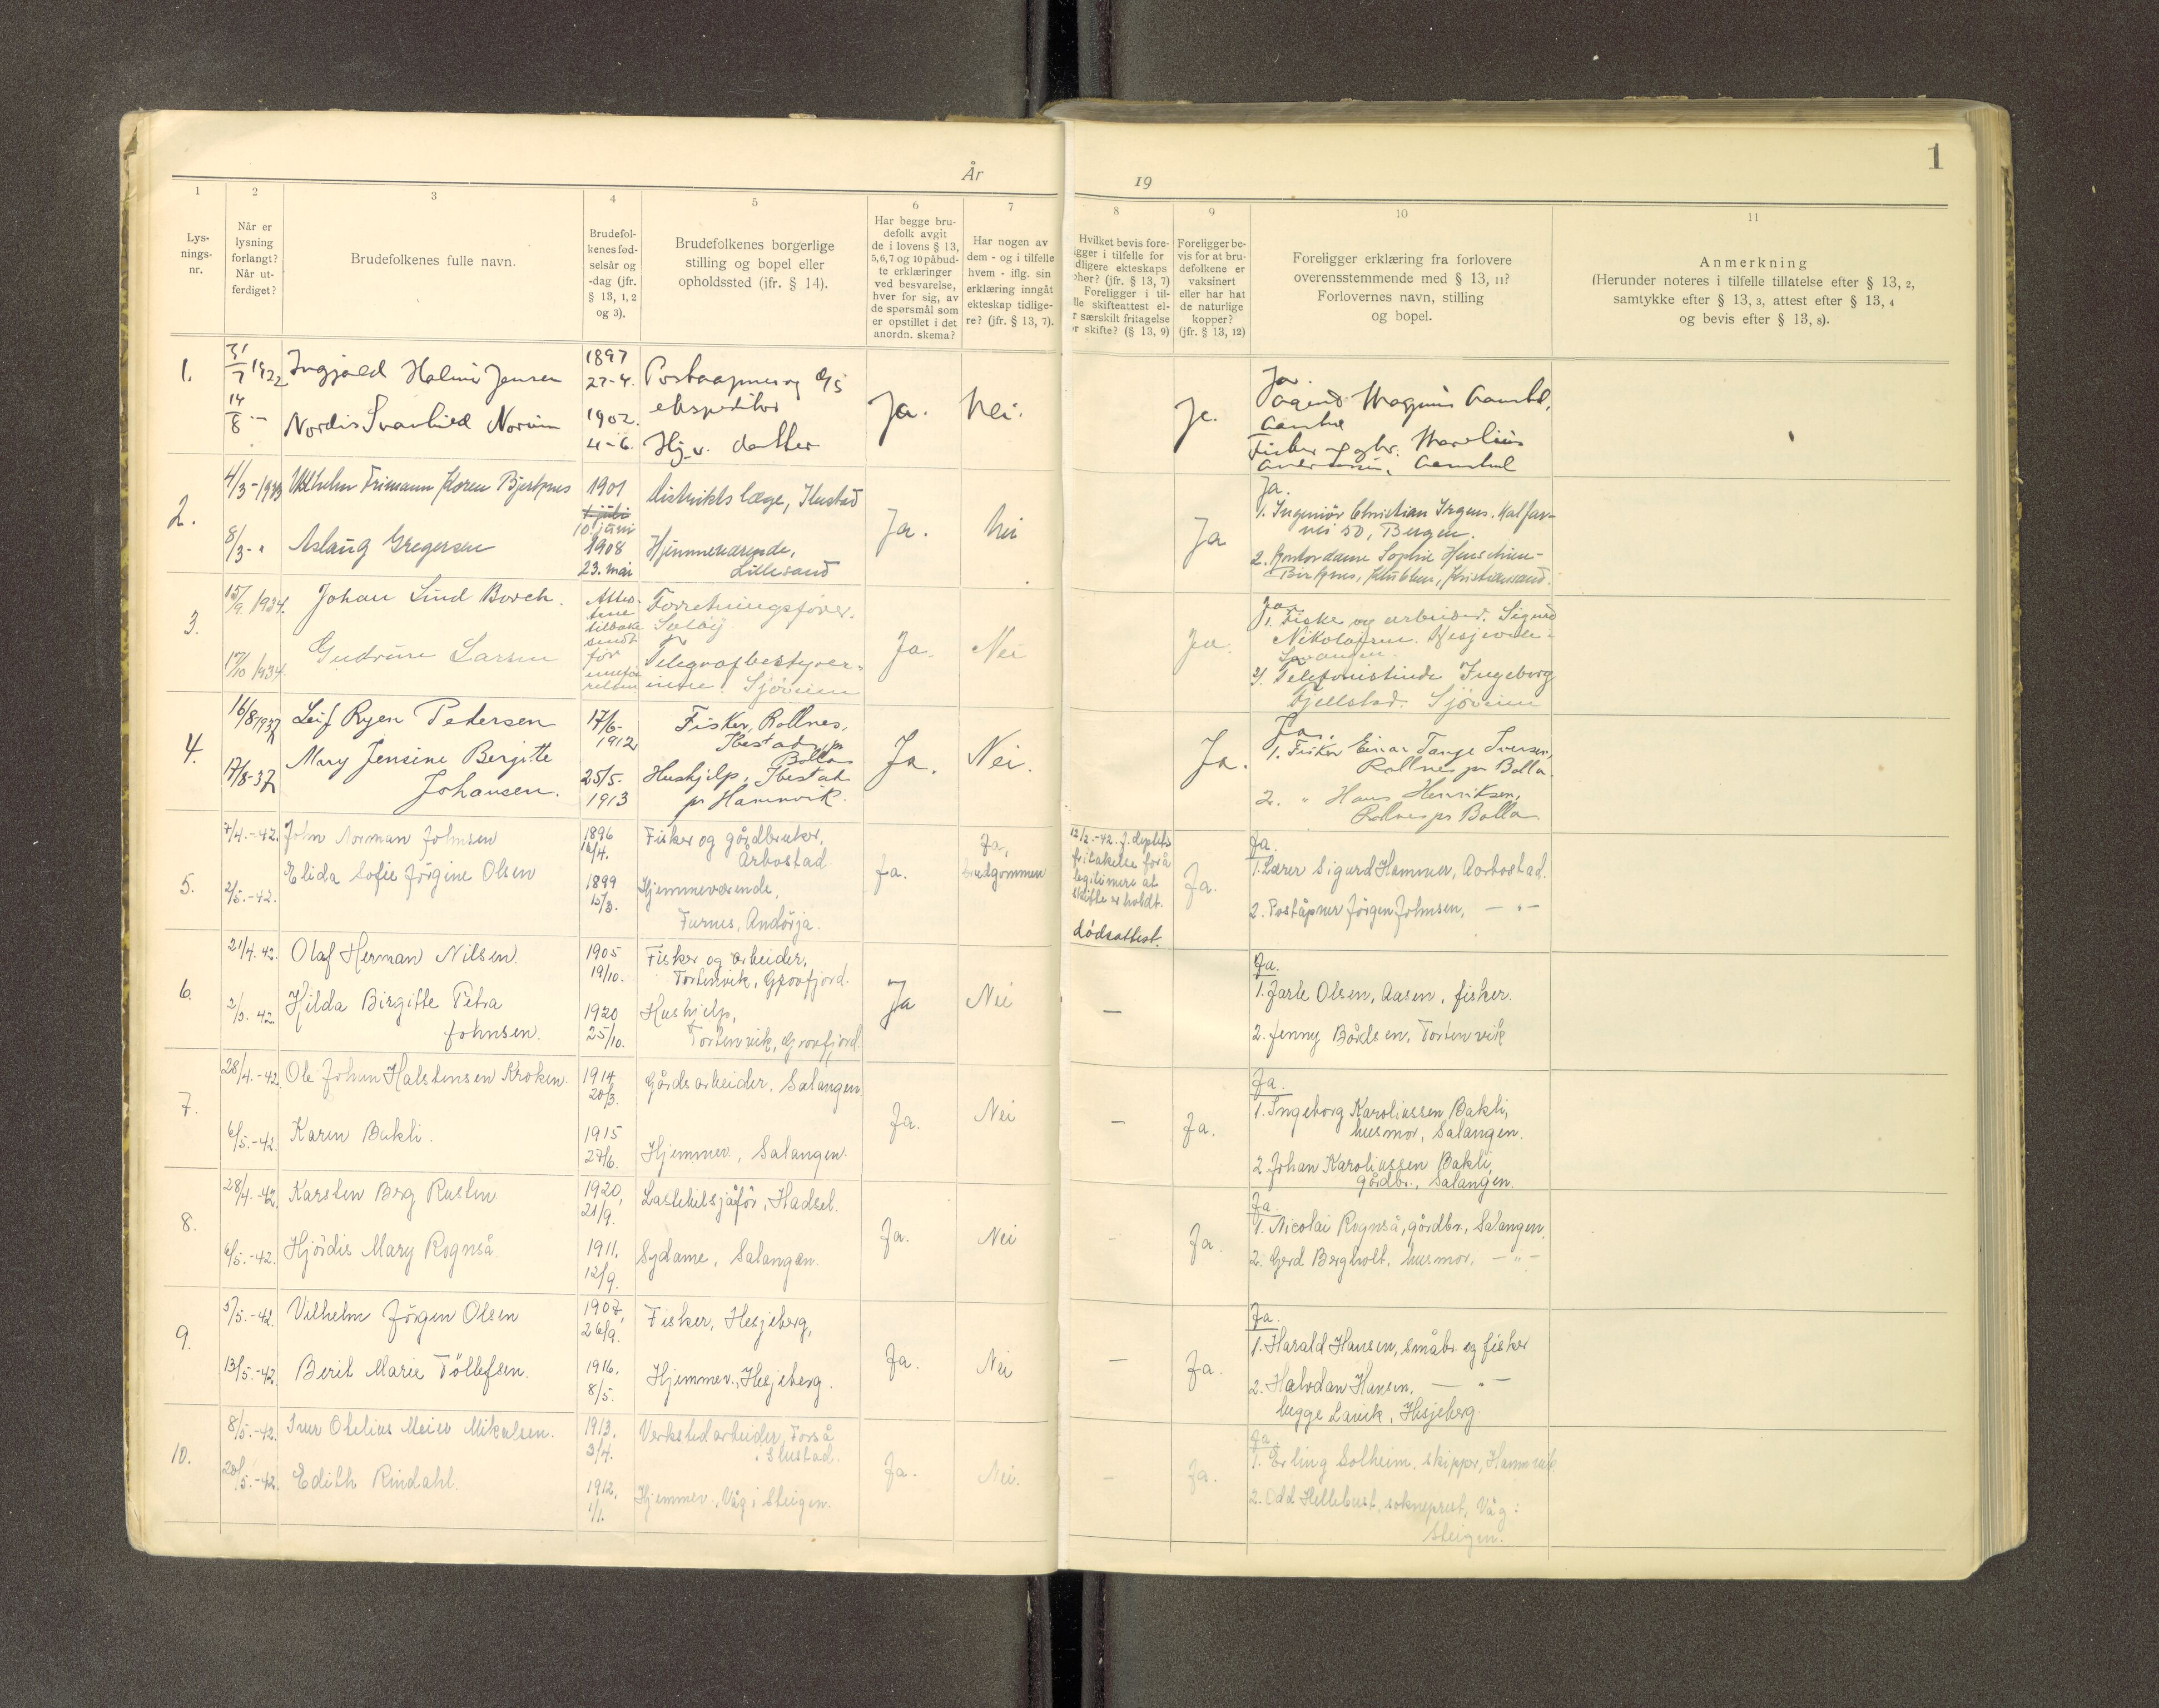 År
19
1
1
2
3
4
5
6
7
8
9
10
11
Lys-
nings-
nr.
Når er
lysning
forlangt?
Når ut-
ferdiget?
Brudefolkenes fulle navn.
Brudefol-
kenes fød-
selsår og
-dag (jfr.
§ 13, 1, 2
og 3).
Brudefolkenes borgerlige
stilling og bopel eller
opholdssted (jfr. § 14).
Har begge bru-
defolk avgit
de i lovens § 13,
5,6,7 og 10 påbud-
te erklæringer
ved besvarelse,
hver for sig, av
de spørsmål som
er opstillet i det
anordn. skema?
Har nogen av
dem - og i tilfelle
hvem - iflg. sin
erklæring inngåt
ekteskap tidlige-
re? (jfr. § 13, 7).
Hvilket bevis fore-
igger i tilfelle for
dligere ekteskaps
phør? (jfr. § 13, 7)
Foreligger i til-
lle skifteattest el-
r særskilt fritagelse
or skifte? (§ 13, 9)
Foreligger be-
vis for at bru-
defolkene er
vaksinert
eller har hat
de naturlige
kopper?
(jfr. § 13, 12)
Foreligger erklæring fra forlovere
overensstemmende med § 13, 11?
Forlovernes navn, stilling
og bopel.
Anmerkning
(Herunder noteres i tilfelle tillatelse efter § 13, 2,
samtykke efter § 13, 3, attest efter § 13, 4
og bevis efter § 13, 8).
1.
31/7 1922
14/8 —
Ingjald Holm Jensen
Nordis Svanhild Norum
1897
27-4.
1902.
4-6.
Postaapner og
ekspeditør
Hj. v. datter
Ja.
Nei.
Ja.
Ja.
Magnus
Fisker og gbr. Marelius
2.
4/3-1933
8/3- "
Vilhelm Frimann Koren Bjerknes
Aslaug Gregersen
1901
1. juli
10. juni
1908
23. mai
Distriktslæge, Ibestad
Hjemmeværende,
Lillesand
Ja.
Nei
Ja
Ja.
1. Ingeniör Christian Irgens. Kalfar-
vei 50, Bergen.
2. Kontordame Sophie Henschien-
Kristiansand.
3.
15/9 1934.
17/10 1934.
Johan Lind Borch.
Gudrun Larsen
Attes-
tene
tilbake
sendt
før
innfø
relsen
Forretningsförer.
Telegrafbestyrer-
inne. Sjövein
Ja.
Nei
Ja.
Ja.
1. Fisker og arbeider. Sigurd
Nikolaisen.
2. Telefonistinde Ingeborg
Fjellstad. Sjövein
4.
16/8 1937
17/8-37
Leif Ryen Pedersen
Mary Jensine Bergitte
Johansen.
17/6-
1912
25/5.
1913
Fisker, Rollnes,
Ibestad pr
Bolla
Hushjelp, Ibestad
pr Hamnvik.
Ja.
Nei.
Ja.
Ja.
1. Fisker Einar Tange Iversen,
Rollnes pr Bolla.
2. " Hans Henriksen,
Rollnes pr Bolla
5.
7/4.-42.
2/5.-42.
John Norman Johnsen
Elida Sofie Jörgine Olsen
1896
16/4.
1899
15/3.
Fisker og gårdbruker,
Årbostad
Hjemmeværende,
Furnes, Andörja.
Ja.
Ja,
brudgommen
12/2.-42. J. deptets
fritakelse for å
legitimere at
skifte er holdt.
dödsattest.
Ja.
Ja.
1. Lærer Sigurd Hammer, Aarbostad.
2. Poståpner Jörgen Johnsen, — " —
6.
21/4.42.
2/5. 42.
Olaf Herman Nilsen.
Hilda Birgitte Petra
Johnsen.
1905
19/10.
1920
25/10.
Fisker og arbeider,
Tortenvik, Grovfjord.
Hushjelp,
Tortenvik, Grovfjord.
Ja
Nei
—
Ja.
1. Jarle Olsen, Aasen, fisker.
2. Jenny Bårdsen, Tortenvik
7.
28/4.-42.
6/5.-42.
Ole Johan Halstensen Kroken.
Karen Bakli.
1914
20/3.
1915
27/6.
Gårdsarbeider, Salangen
Hjemmev., Salangen.
Ja.
Nei
—
Ja.
Ja.
1. Ingeborg Karoliussen Bakli,
husmor, Salangen.
2. Johan Karoliussen Bakli,
gårdbr., Salangen.
8.
28/4.-42.
6/5.-42.
Karsten Berg Rusten
Hjördis Mary Rognså
1920,
21/9.
1911.
12/9.
Lastebilsjåför, Hadsel.
Sydame, Salangen.
Ja.
Nei
-
Ja.
Ja.
1. Nicolai Rognså, gårdbr., Salangen.
2. Gerd Bergholt, husmor, — " —
9.
5/5.-42.
13/5.-42.
Vilhelm Jörgen Olsen
Berit Marie Töllefsen.
1907,
26/9.
1916.
8/5.
Fisker, Hesjeberg,
Hjemmev., Hesjeberg.
Ja.
Nei
—
Ja.
Ja.
1. Harald Hansen, småbr. og fisker
2. Halvdan Hansen, — " —
begge Lavik, Hesjeberg.
10.
8/5.-42.
20/5.-42.
Ivar Otelius Meier Mikalsen.
Edith Rindahl.
1913.
3/4.
1912.
1/1.
Verkstedarbeider, Forså
i Ibestad.
Hjemmev., Våg i Steigen.
Ja.
Nei.
—
Ja.
Ja.
1. Erling Solheim, skipper, Hamnvik.
2. Odd Hellebust, sokneprest, Våg i
Steigen.